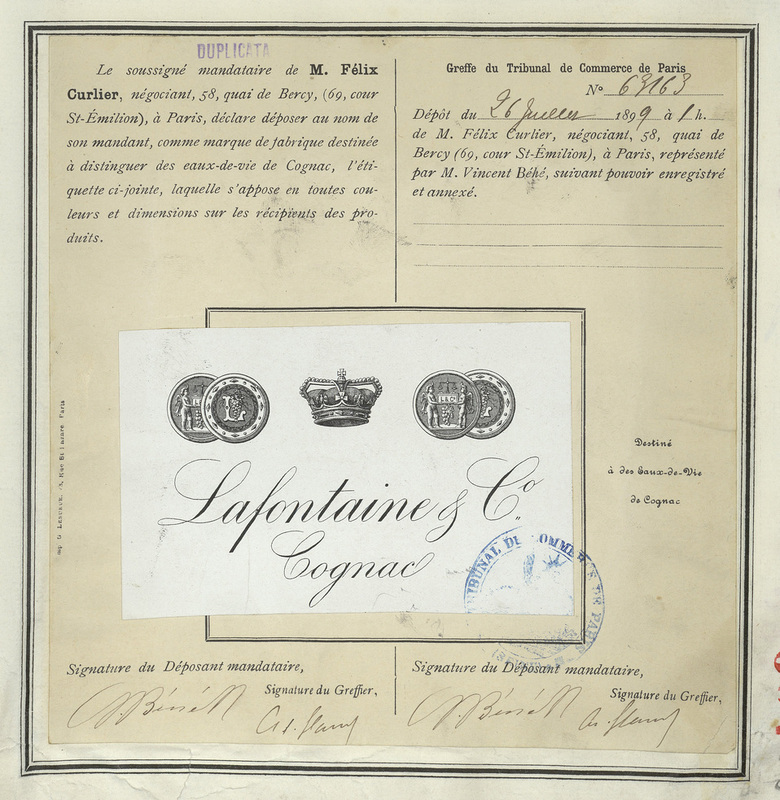 DUPLICATA
Le soussigné mandataire de M. Félix
Curlier, négociant, 58, quai de Bercy, (69, cour
St-Émilion), à Paris, déclare déposer au nom de
son mandant, comme marque de fabrique destinée
à distinguer des eaux-de-vie de Cognac, l'éti-
quette ci-jointe, laquelle s'appose en toutes cou-
leurs et dimensions sur les récipients des pro-
duits.
Greffe du Tribunal de Commerce de Paris
No 63163
Dépôt du 26 Juillet 1899 à 1 h.
de M. Félix Curlier, négociant, 58, quai de
Bercy (69, cour St-Émilion), à Paris, représenté
par M. Vincent Béhé, suivant pouvoir enregistré
et annexé.
L
L&C
Lafontaine & Co
Cognac
Destiné
à des Eaux-de-Vie
de Cognac
TRIBUNAL DE COMMERCE DE PARIS
Signature du Déposant mandataire,
Signature du Greffier,
Signature du Déposant mandataire,
Signature du Greffier,